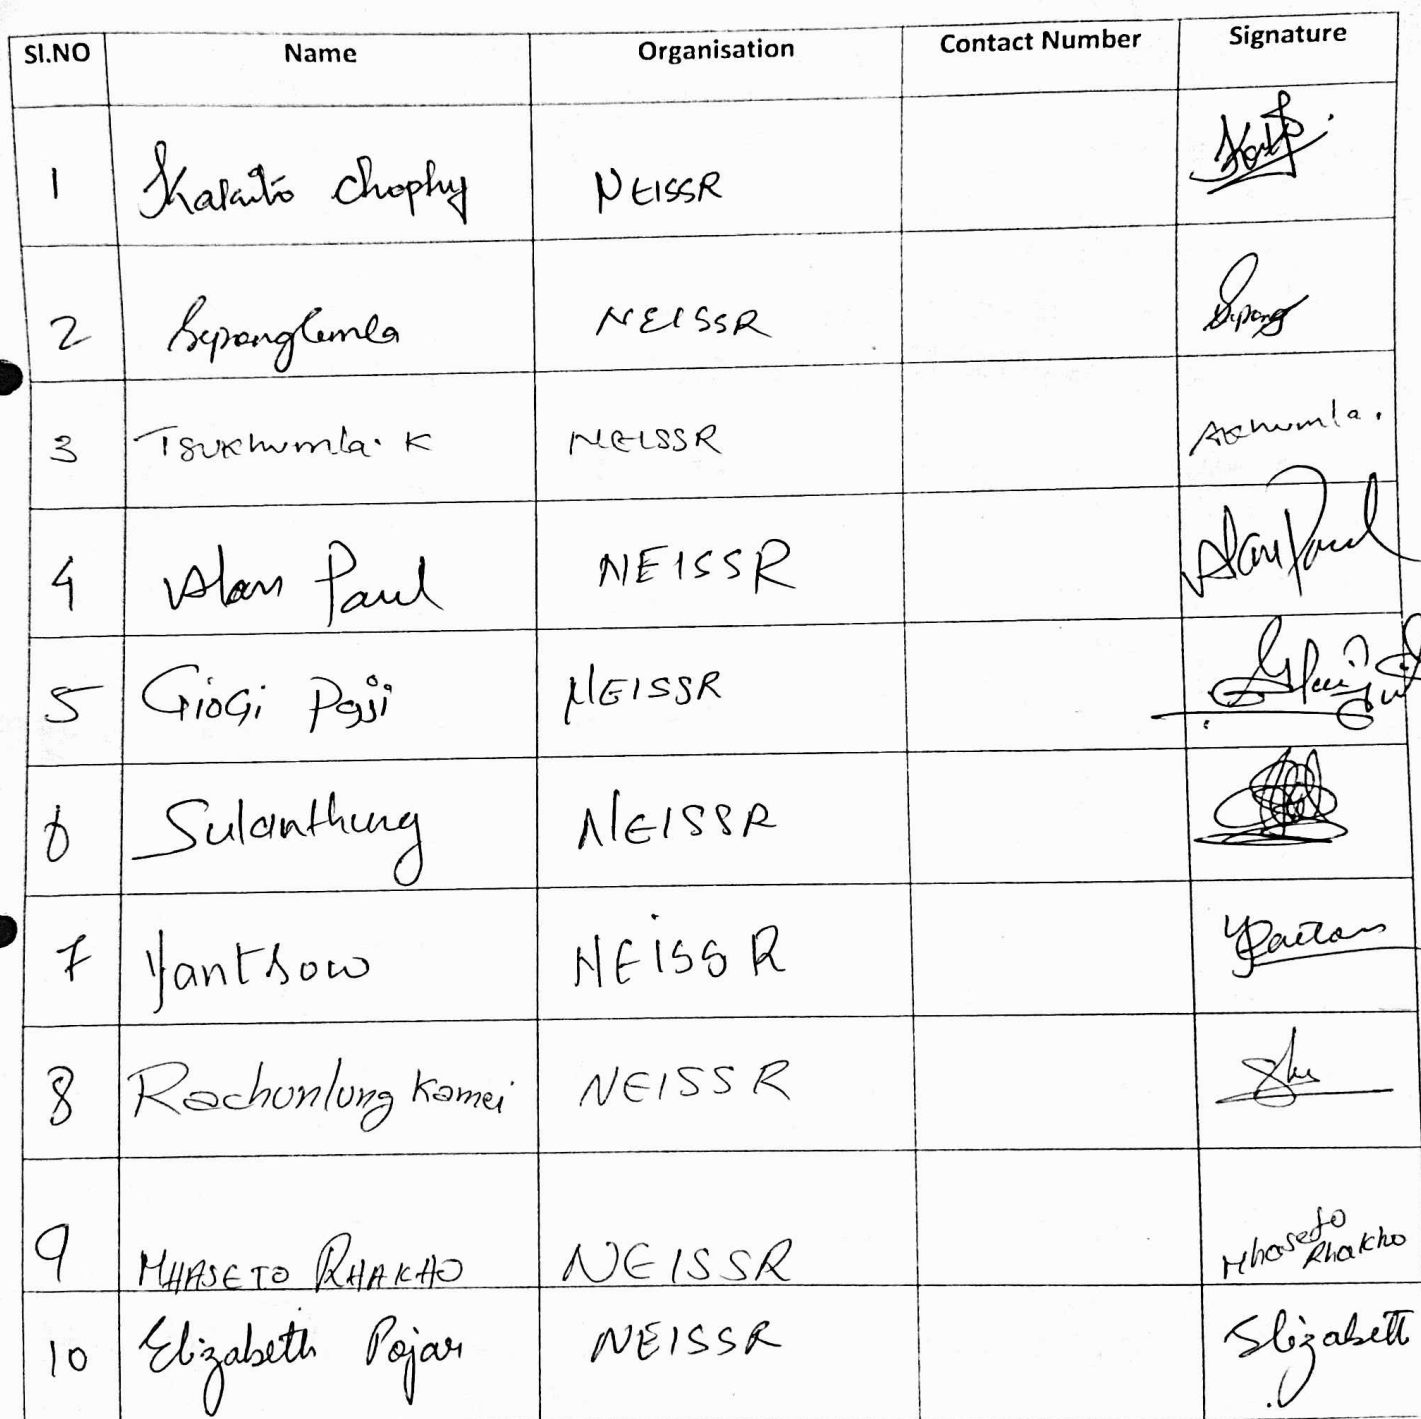 Sl.NO Name Organisation Contact Number Signature
1 Kakuto Chophy NEISSR
2 Seponglemla NEISSR Sepong
3 Tsukhumla. K NEISSR Akhumla.
4 Alan Paul NEISSR Alan Paul
5 GioGi Paji NEISSR
6 Sulanthung NEISSR
7 Yantsow NEISSR
8 Rachunlung Kamei NEISSR
9 MHASETO RHAKHO NEISSR Mhaseto Rhakho
10 Elizabeth Pojar NEISSR Elizabeth